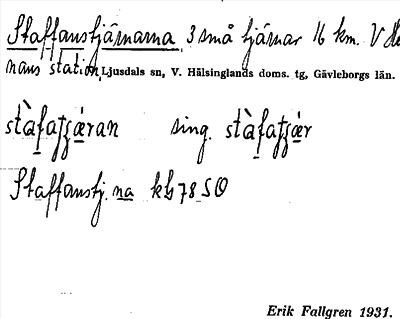 Staffanstjärnarna, 3 små tjärnar 16 km. V He
nans station, Ljusdals sn, V. Hälsinglands doms. tg, Gävleborgs län.
sing.
Staffanstj.na kbl 78 SO
Erik Fallgren 1931.